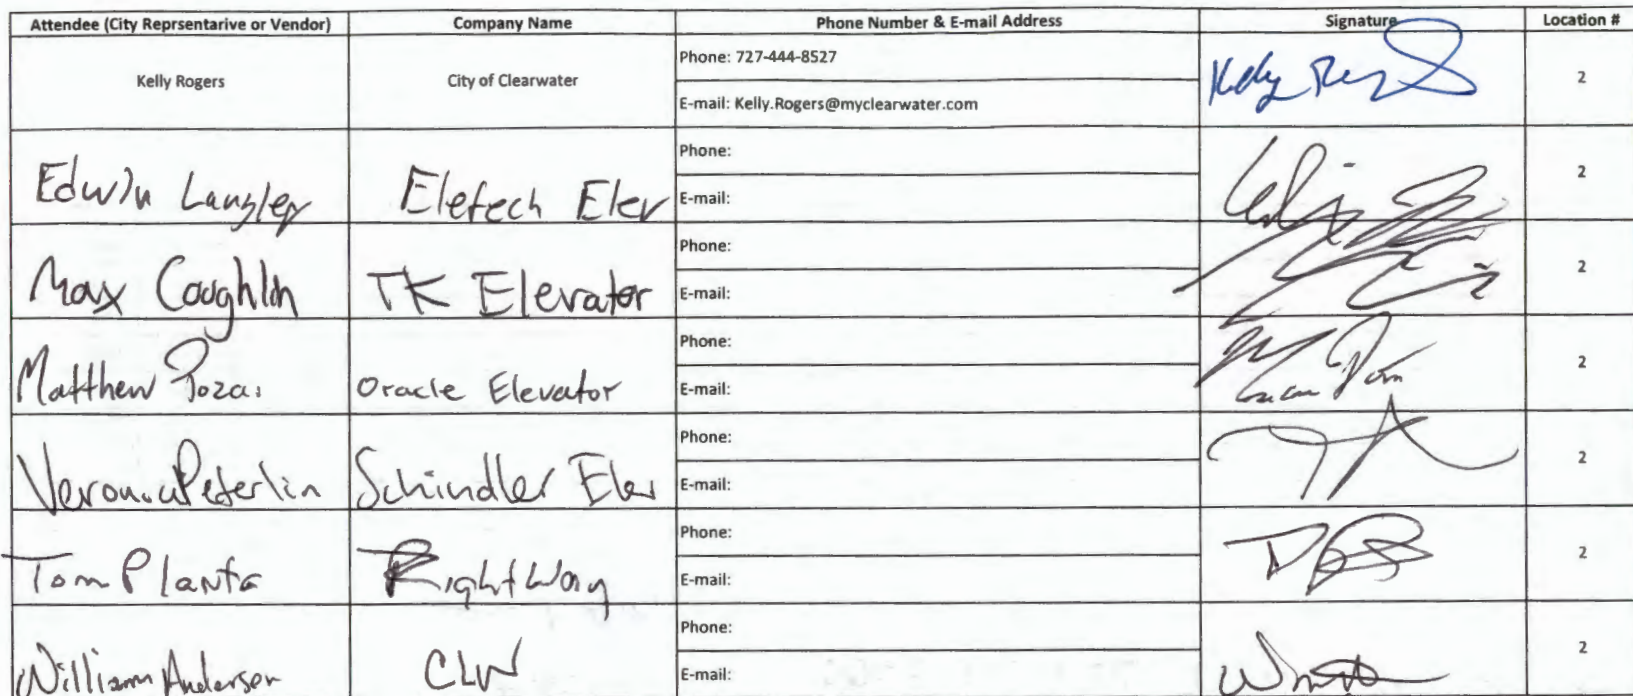 Attendee (City Reprsentarive or Vendor) Company Name Phone Number & E-mail Address Signature Location #
Kelly Rogers City of Clearwater Phone: 727-444-8527 2
E-mail: Kelly.Rogers@myclearwater.com
Kelly
Phone:
Edwin Langley Eletech Elev E-mail: 2
Phone:
Max Coughlin TK Elevator E-mail: 2
Phone:
Matthew Oracle Elevator E-mail: 2
Phone:
Veronica Peterlin Schindler Elev E-mail: 2
Phone:
Tom Planta RightWay E-mail: 2
Phone:
William Anderson CLW E-mail: 2